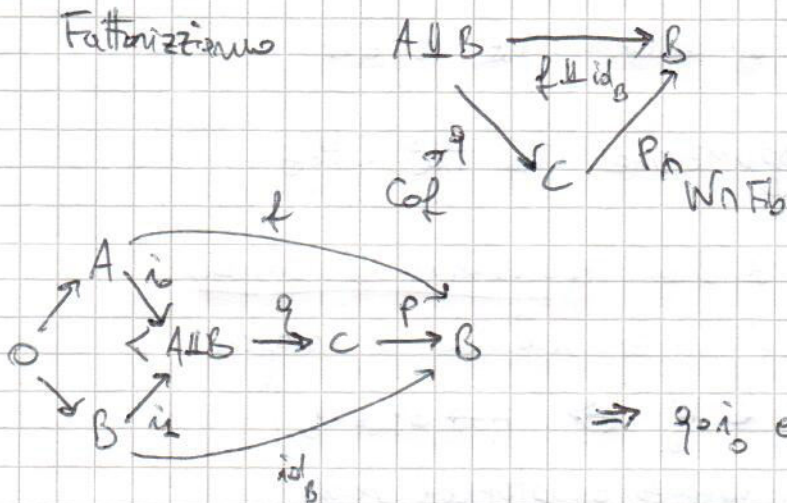 Fattorizziamo
A ⨿ B → B
f ⨿ id_B
q
Cof
C
p
W ∩ Fib
f
A
i_0
0
A ⨿ B → q C → p B
B
i_1
id_B
⇒ q∘i_0 e